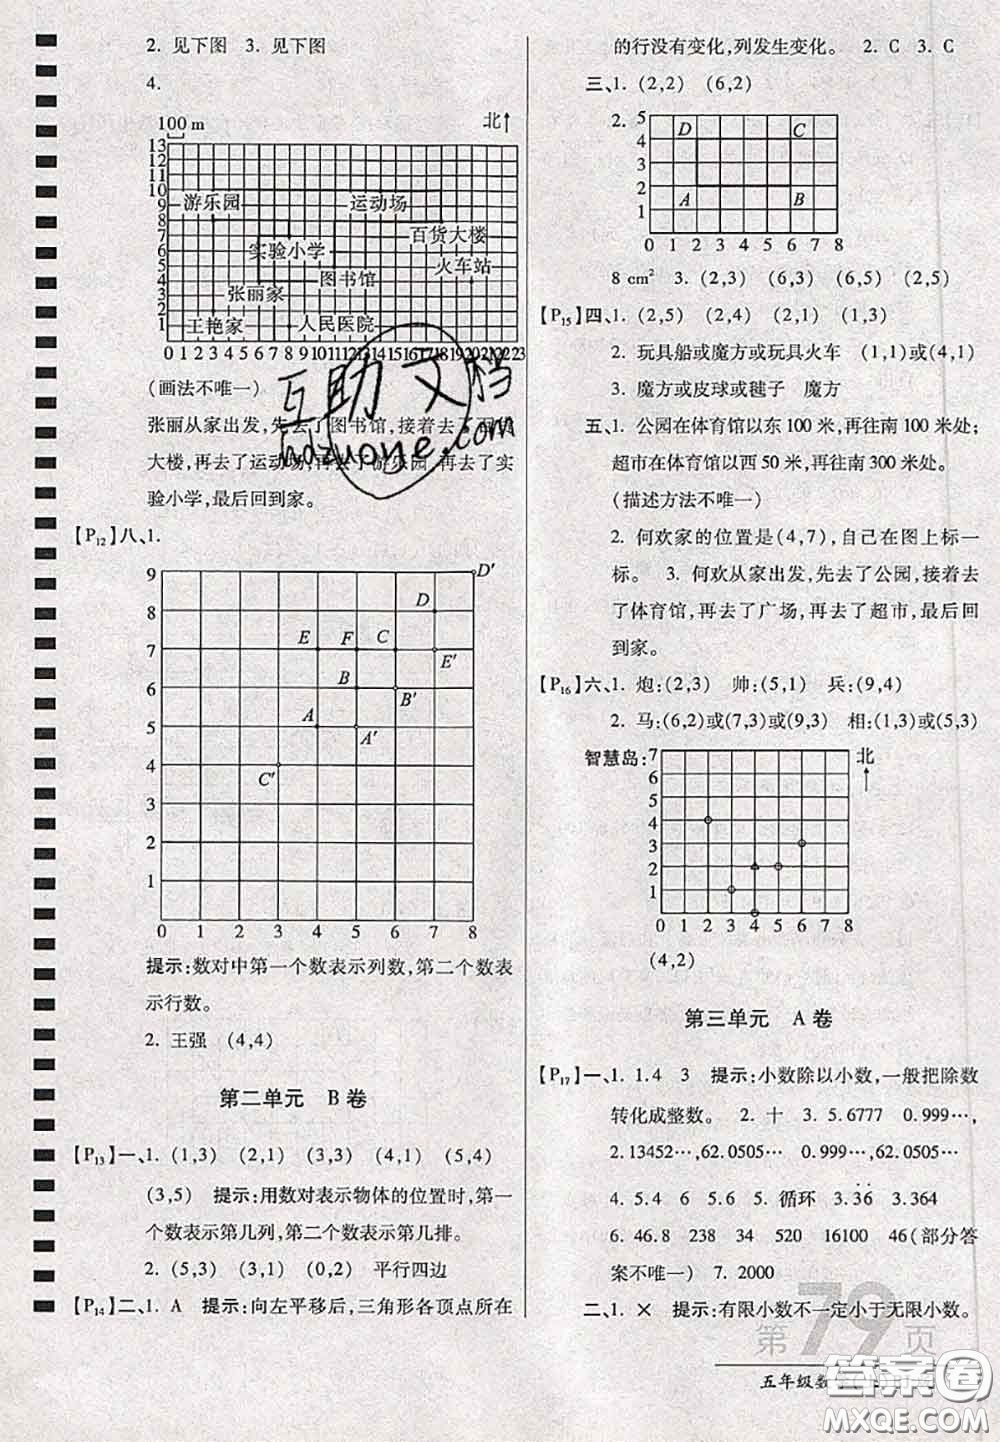 2. 见下图　3. 见下图
4.
100 m
北
13
12
11
10
9
8
7
6
5
4
3
2
1
游乐园
运动场
百货大楼
实验小学
火车站
图书馆
张丽家
王艳家
人民医院
0 1 2 3 4 5 6 7 8 9 10 11 12 13 14 15 16 17 18 19 20 21 22 23
(画法不唯一)
张丽从家出发,先去了图书馆,接着去了百货
大楼,再去了运动场,再去了游乐园,再去了实
验小学,最后回到家。
【P12】八、1.
9 D′
8 D
7 E F C E′
6 B B′
5 A A′
4 C′
3
2
1
0 1 2 3 4 5 6 7 8
提示:数对中第一个数表示列数,第二个数表
示行数。
2. 王强　(4,4)
第二单元　B 卷
【P13】一、1. (1,3)　(2,1)　(3,3)　(4,1)　(5,4)
(3,5)　提示:用数对表示物体的位置时,第一
个数表示第几列,第二个数表示第几排。
2. (5,3)　(3,1)　(0,2)　平行四边
【P14】二、1. A　提示:向左平移后,三角形各顶点所在
的行没有变化,列发生变化。　2. C　3. C
三、1. (2,2)　(6,2)
2. 5
4
3
2
1
D C
A B
0 1 2 3 4 5 6 7 8
8 cm²　3. (2,3)　(6,3)　(6,5)　(2,5)
【P15】四、1. (2,5)　(2,4)　(2,1)　(1,3)
2. 玩具船或魔方或玩具火车　(1,1)或(4,1)
3. 魔方或皮球或毽子　魔方
五、1. 公园在体育馆以东 100 米,再往南 100 米处;
超市在体育馆以西 50 米,再往南 300 米处。
(描述方法不唯一)
2. 何欢家的位置是(4,7),自己在图上标一
标。　3. 何欢从家出发,先去了公园,接着去
了体育馆,再去了广场,再去了超市,最后回
到家。
【P16】六、1. 炮:(2,3)　帅:(5,1)　兵:(9,4)
2. 马:(6,2)或(7,3)或(9,3)　相:(1,3)或(5,3)
智慧岛: 7
6
5
4
3
2
1
北
0 1 2 3 4 5 6 7 8
(4,2)
第三单元　A 卷
【P17】一、1. 1.4　3　提示:小数除以小数,一般把除数
转化成整数。　2. 十　3. 5.6777　0.999…,
2.13452…,62.0505…　0.999…,62.0505…
4. 5.4　5.6　5. 循环　3.3̇6̇　3.364
6. 46.8　238　34　520　16100　46(部分答
案不唯一)　7. 2000
二、1. ×　提示:有限小数不一定小于无限小数。
第79页
五年级数
互助文档
hdzuoye.com
答案圈
MXQE.COM